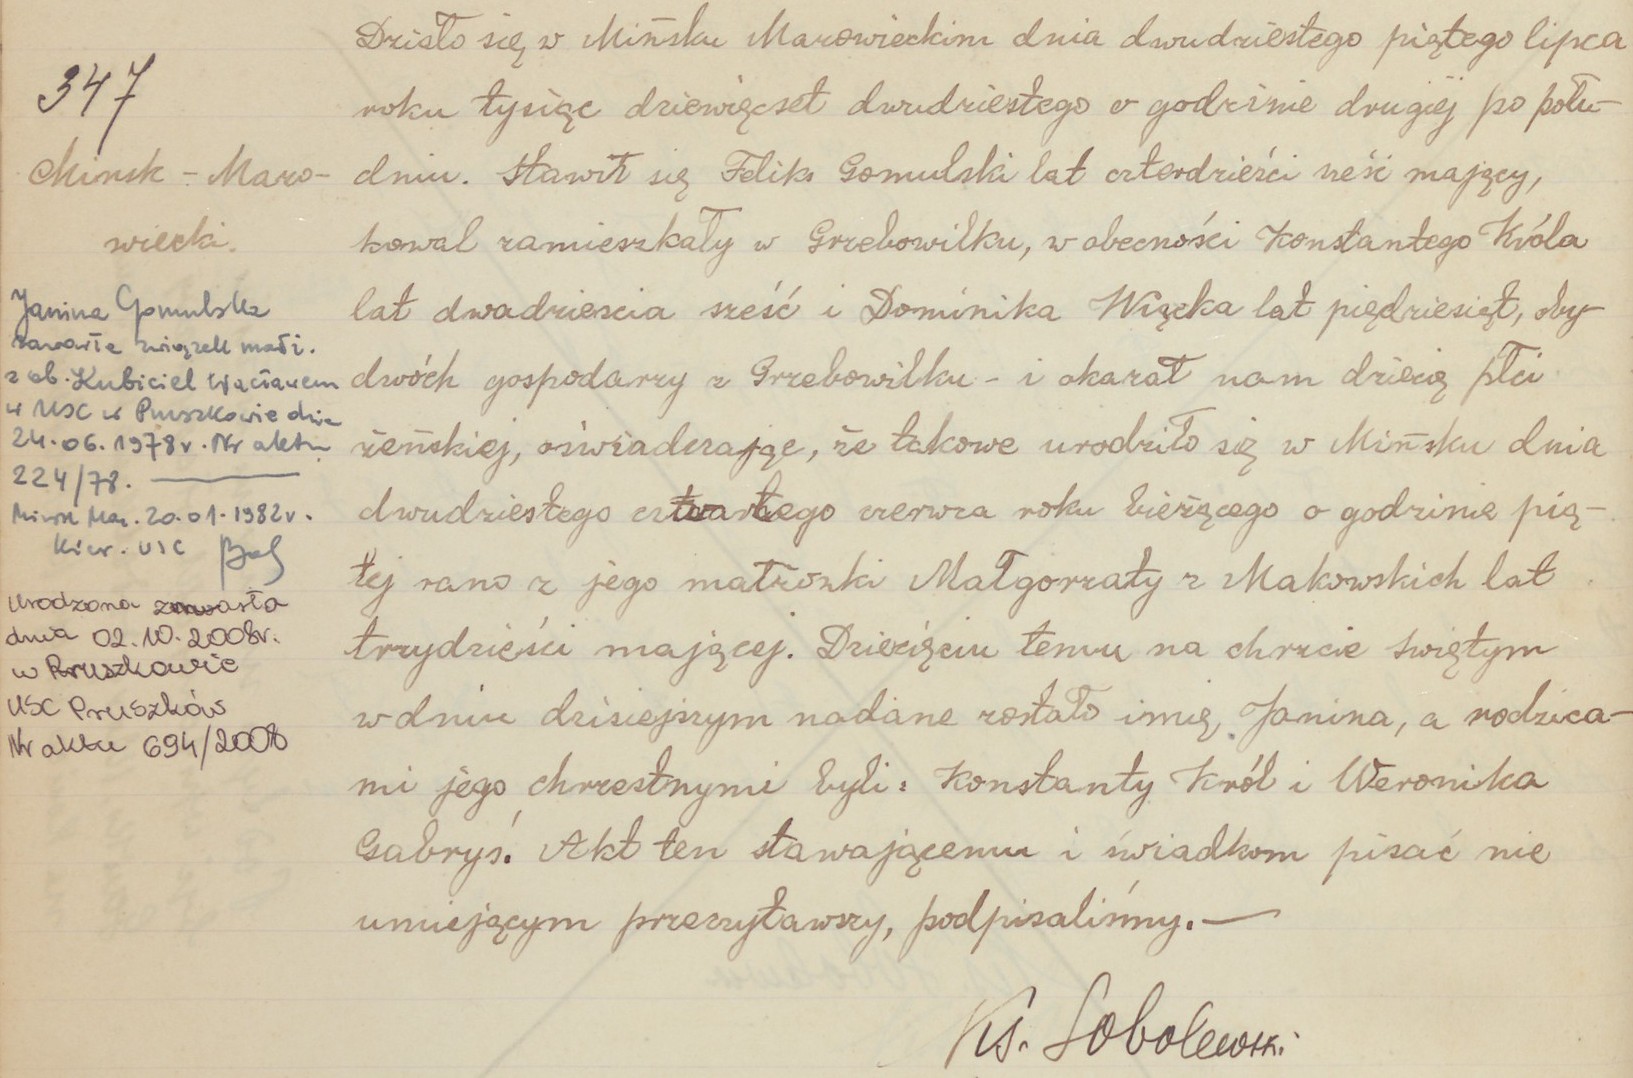 347
Mińsk - Mazo-
wiecki.
Janina Gomulska
zawarła związek małż.
z ob. Kubiciel Wacławem
w USC w Pruszkowie dnia
24.06.1978r. Nr aktu
224/78.
Mińsk Maz. 20.01.1982r.
Kier. USC
Urodzona zmarła
dnia 02.10.2008r.
w Pruszkowie
USC Pruszków
Nr aktu 694/2008
Działo się w Mińsku Mazowieckim dnia dwudziestego piątego lipca
roku tysiąc dziewięcset dwudziestego o godzinie drugiej po połu-
dniu. Stawił się Feliks Gomulski lat czterdzieści sześć mający,
kowal zamieszkały w Grzebowilku, w obecności Konstantego Króla
lat dwadzieścia sześć i Dominika Wiącka lat piędziesiąt, oby-
dwóch gospodarzy z Grzebowilku - i okazał nam dziecię płci
żeńskiej, oświadczając, że takowe urodziło się w Mińsku dnia
dwudziestego czwartego czerwca roku bieżącego o godzinie pią-
tej rano z jego małżonki Małgorzaty z Makowskich lat
trzydzieści mającej. Dziecięciu temu na chrzcie świętym
w dniu dzisiejszym nadane zostało imię, Janina, a rodzica-
mi jego chrzestnymi byli: Konstanty Król i Weronika
Gabryś. Akt ten stawającemu i świadkom pisać nie
umiejącym przeczytawszy, podpisaliśmy.
Ks. Sobolewski